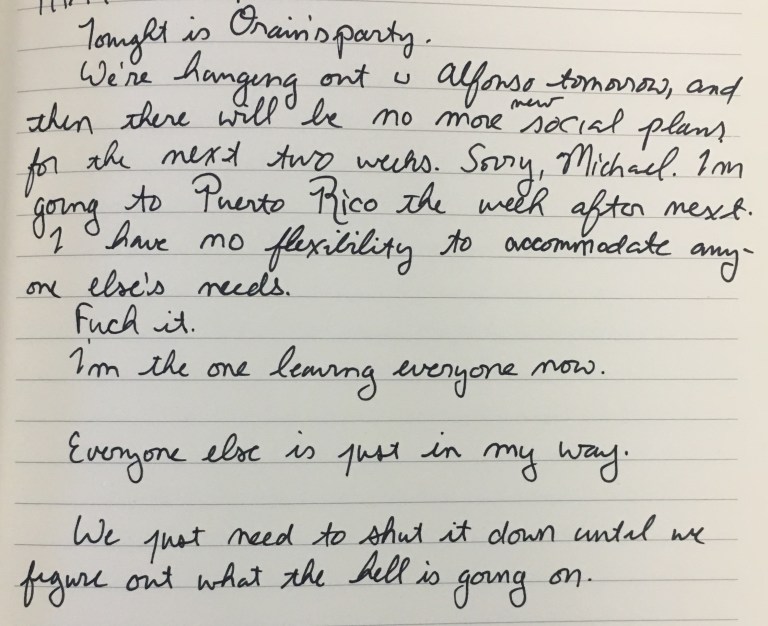 Tonight is Orain's party.
We're hanging out w Alfonso tomorrow, and
new
then there will be no more social plans
for the next two weeks. Sorry, Michael. I'm
going to Puerto Rico the week after next.
I have no flexibility to accommodate any-
one else's needs.
Fuck it.
I'm the one leaving everyone now.
Everyone else is just in my way.
We just need to shut it down until we
figure out what the hell is going on.